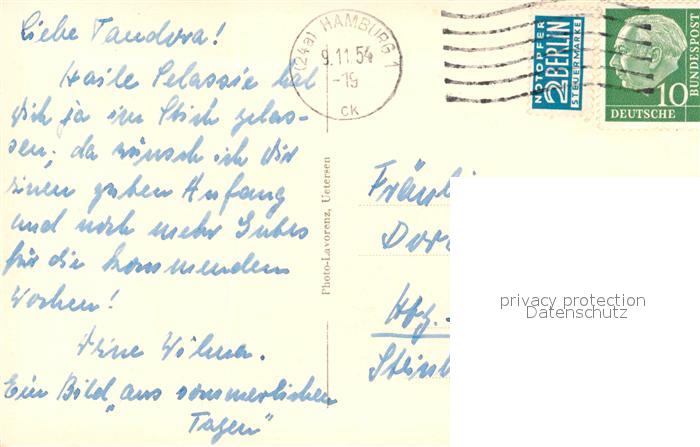 Liebe Tandora!
Haile Selassie hat
Dich ja im Stich gelas-
sen, da wünsch ich Dir
einen guten Anfang
und noch mehr Gutes
für die kommenden
Wochen!
Deine Wilma.
Ein Bild „aus sommerlichen
Tagen"
Photo-Lavorenz, Uetersen
(24a) HAMBURG 1
9.11.54
-19
ck
NOTOPFER
2 BERLIN
STEUERMARKE
10
DEUTSCHE
BUNDESPOST
Fräul
Dor
Hbg.
Stein
privacy protection
Datenschutz